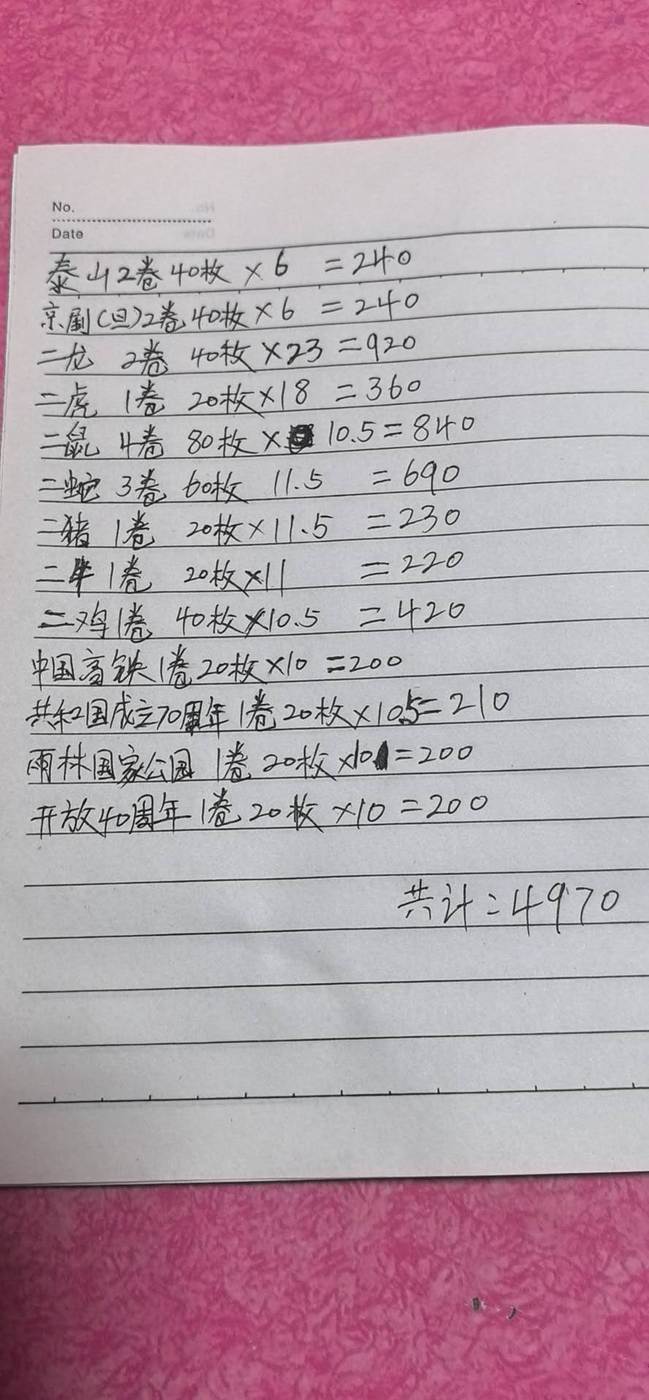 No.
Date
泰山2卷40枚×6 =240
京剧(旦)2卷40枚×6 =240
二龙 2卷 40枚×23=920
二虎 1卷 20枚×18 =360
二鼠 4卷 80枚× 10.5=840
二蛇 3卷 60枚 11.5 =690
二猪 1卷 20枚×11.5 =230
二牛1卷 20枚×11 =220
二鸡1卷 40枚×10.5 =420
中国高铁1卷20枚×10=200
共和国成立70周年1卷20枚×10.5=210
雨林国家公园 1卷 20枚×10=200
开放40周年1卷20枚×10=200
共计=4970